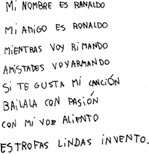 Mi NOMBRE ES RANALDO
Mi AMIGO ES RONALDO
MIENTRAS VOY RIMANDO
AMISTADES VOY ARMANDO
SI TE GUSTA MI CANCIÓN
BAILALA CON PASIÓN
CON MI VOZ ALIENTO
ESTROFAS LINDAS INVENTO.